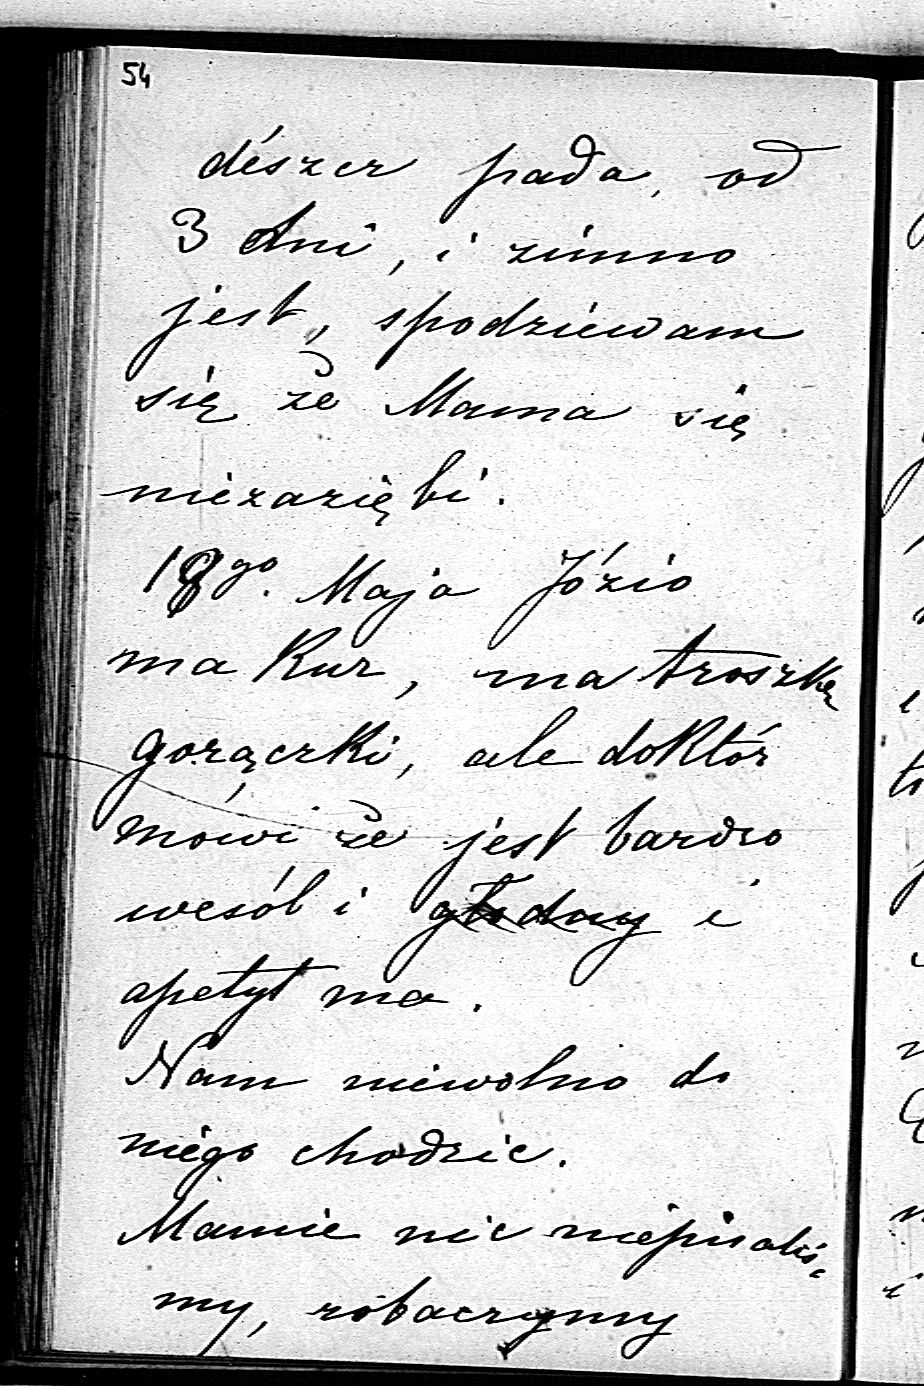 54
dészcz pada, od
3 dni, i zimno
jest, spodziewam
się że Mama się
niezaziębi.
18go. Maja Józio
ma Kur, ma troszkę
gorączki, ale doktór
mówi że jest bardzo
wesół i głodny i
apetyt ma.
Nam niewolno do
niego chodzic.
Mamie nic niepisaliś-
my, zobaczymy